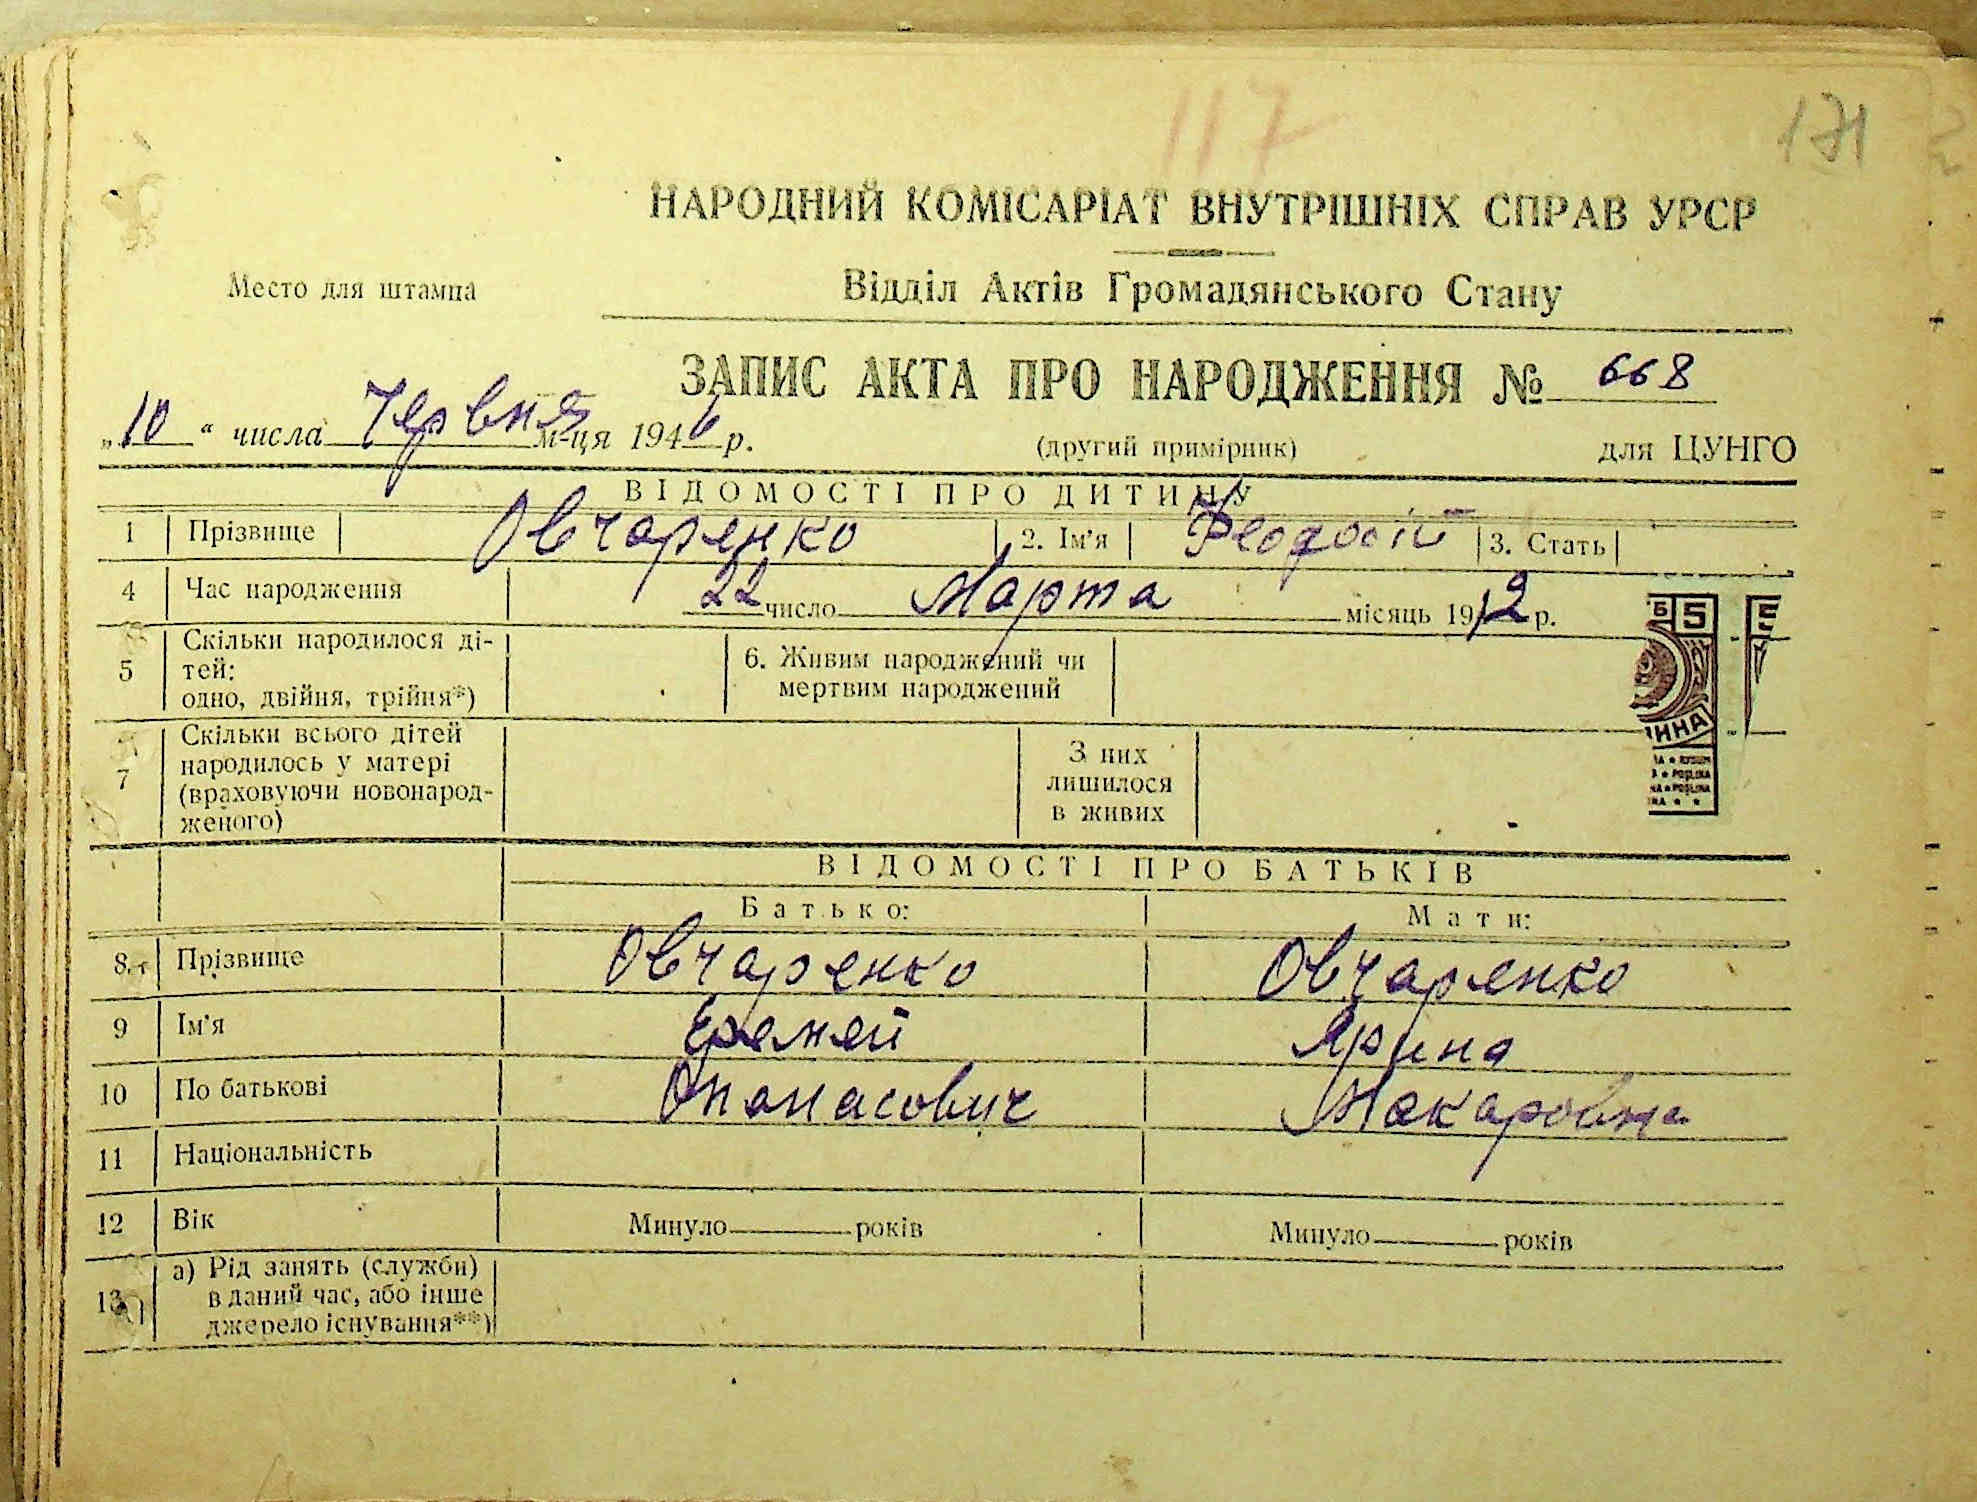 117
171
НАРОДНИЙ КОМІСАРІАТ ВНУТРІШНІХ СПРАВ УРСР
Место для штампа
Відділ Актів Громадянського Стану
ЗАПИС АКТА ПРО НАРОДЖЕННЯ № 668
„10“ числа Червня м-ця 1946 р.
(другий примірник)
для ЦУНГО
ВІДОМОСТІ ПРО ДИТИНУ
1 Прізвище Овчаренко 2. Ім’я Феодосій 3. Стать
4 Час народження 22 число Марта місяць 1912 р.
5 Скільки народилося ді-
тей:
одно, двійня, трійня*)
6. Живим народжений чи
мертвим народжений
7 Скільки всього дітей
народилось у матері
(враховуючи новонарод-
женого)
З них
лишилося
в живих
Б 5
ИНА
ВІДОМОСТІ ПРО БАТЬКІВ
Батько: Мати:
8 Прізвище Овчаренко Овчаренко
9 Ім’я Еремей Ярина
10 По батькові Опанасович Макаровна
11 Національність
12 Вік Минуло років Минуло років
13 а) Рід занять (служби)
в даний час, або інше
джерело існування**)